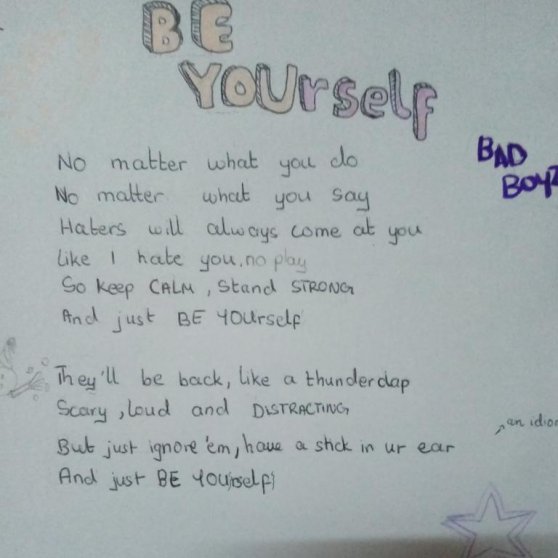 BE
YOUrself
BAD
BOYZ
No matter what you do
No matter what you say
Haters will always come at you
Like I hate you, no play
So keep CALM, Stand STRONG
And just BE YOUrself
They'll be back, like a thunderclap
Scary, loud and DISTRACTING
But just ignore 'em, have a stick in ur ear
an idiom
And just BE YOUrself